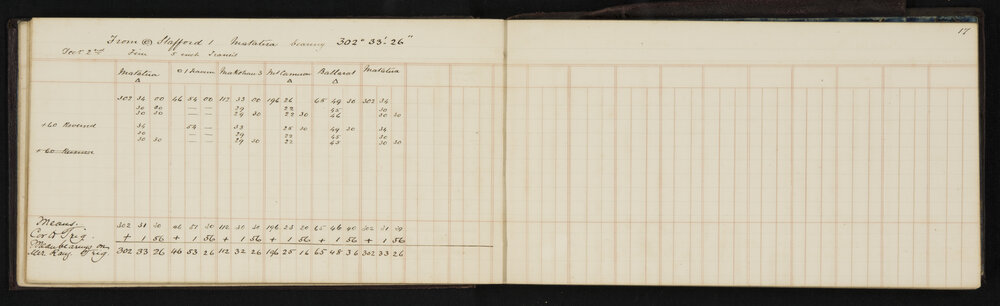 From Stafford 1 Matatua bearing 302° 33' 26"
17
Decr 2nd Fine 5 inch Transit
Matatua Makohau 3 Mt Cameron Ballarat Matatua
△ △ △
302 34 00 46 54 00 112 33 00 196 26 65 49 30 302 34
30 30 — — 29 22 45 30
30 30 — — 29 30 22 30 46 30 30
+60 Reversed 34 54 — 33 25 30 49 30 34
30 — — 29 22 45 30
30 30 — — 29 30 22 45 30 30
+60
Means. 302 31 30 46 51 30 112 30 30 196 23 20 65 46 40 302 31 30
Cor to Trig. + 1 56 + 1 56 + 1 56 + 1 56 + 1 56 + 1 56
bearings on
302 33 26 46 53 26 112 32 26 196 25 16 65 48 36 302 33 26